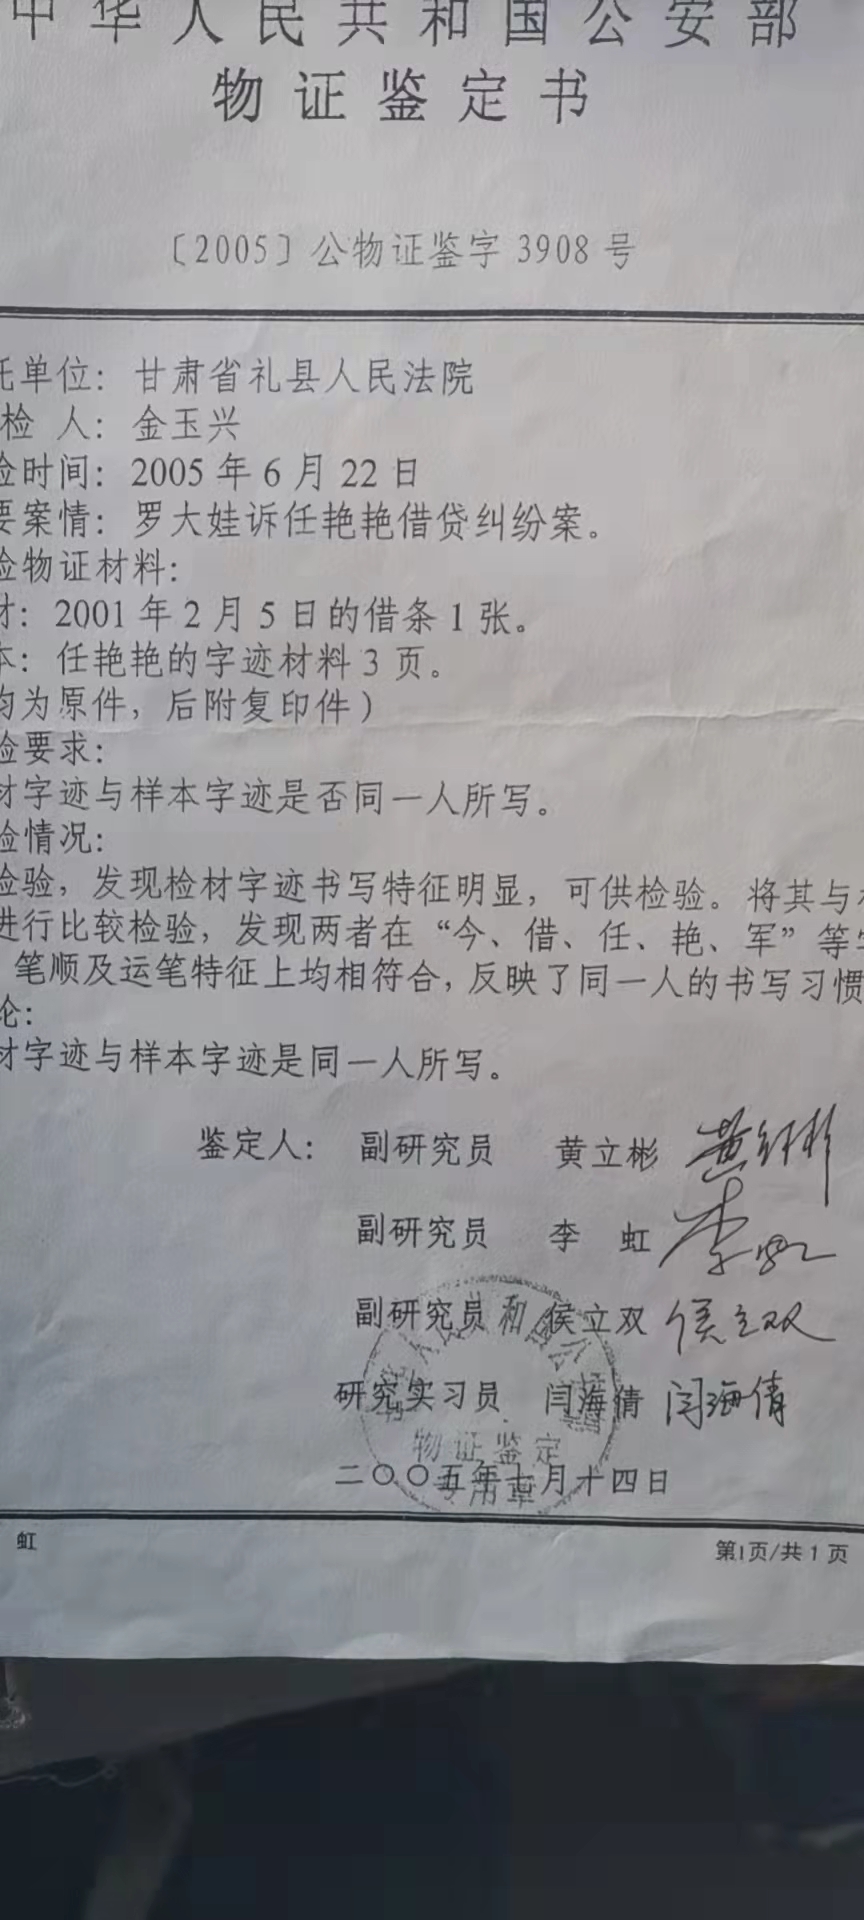 中华人民共和国公安部
物证鉴定书
〔2005〕公物证鉴字 3908 号
托单位：甘肃省礼县人民法院
检 人：金玉兴
检时间：2005 年 6 月 22 日
要案情：罗大娃诉任艳艳借贷纠纷案。
检物证材料：
材：2001 年 2 月 5 日的借条 1 张。
本：任艳艳的字迹材料 3 页。
均为原件，后附复印件）
检要求：
材字迹与样本字迹是否同一人所写。
检情况：
检验，发现检材字迹书写特征明显，可供检验。将其与
进行比较检验，发现两者在“今、借、任、艳、军”等
笔顺及运笔特征上均相符合，反映了同一人的书写习惯
论：
材字迹与样本字迹是同一人所写。
鉴定人： 副研究员 黄立彬 黄立彬
副研究员 李 虹 李虹
副研究员 侯立双 侯立双
研究实习员 闫海倩 闫海倩
物证鉴定
专用章
二〇〇五年七月十四日
虹
第1页/共 1 页